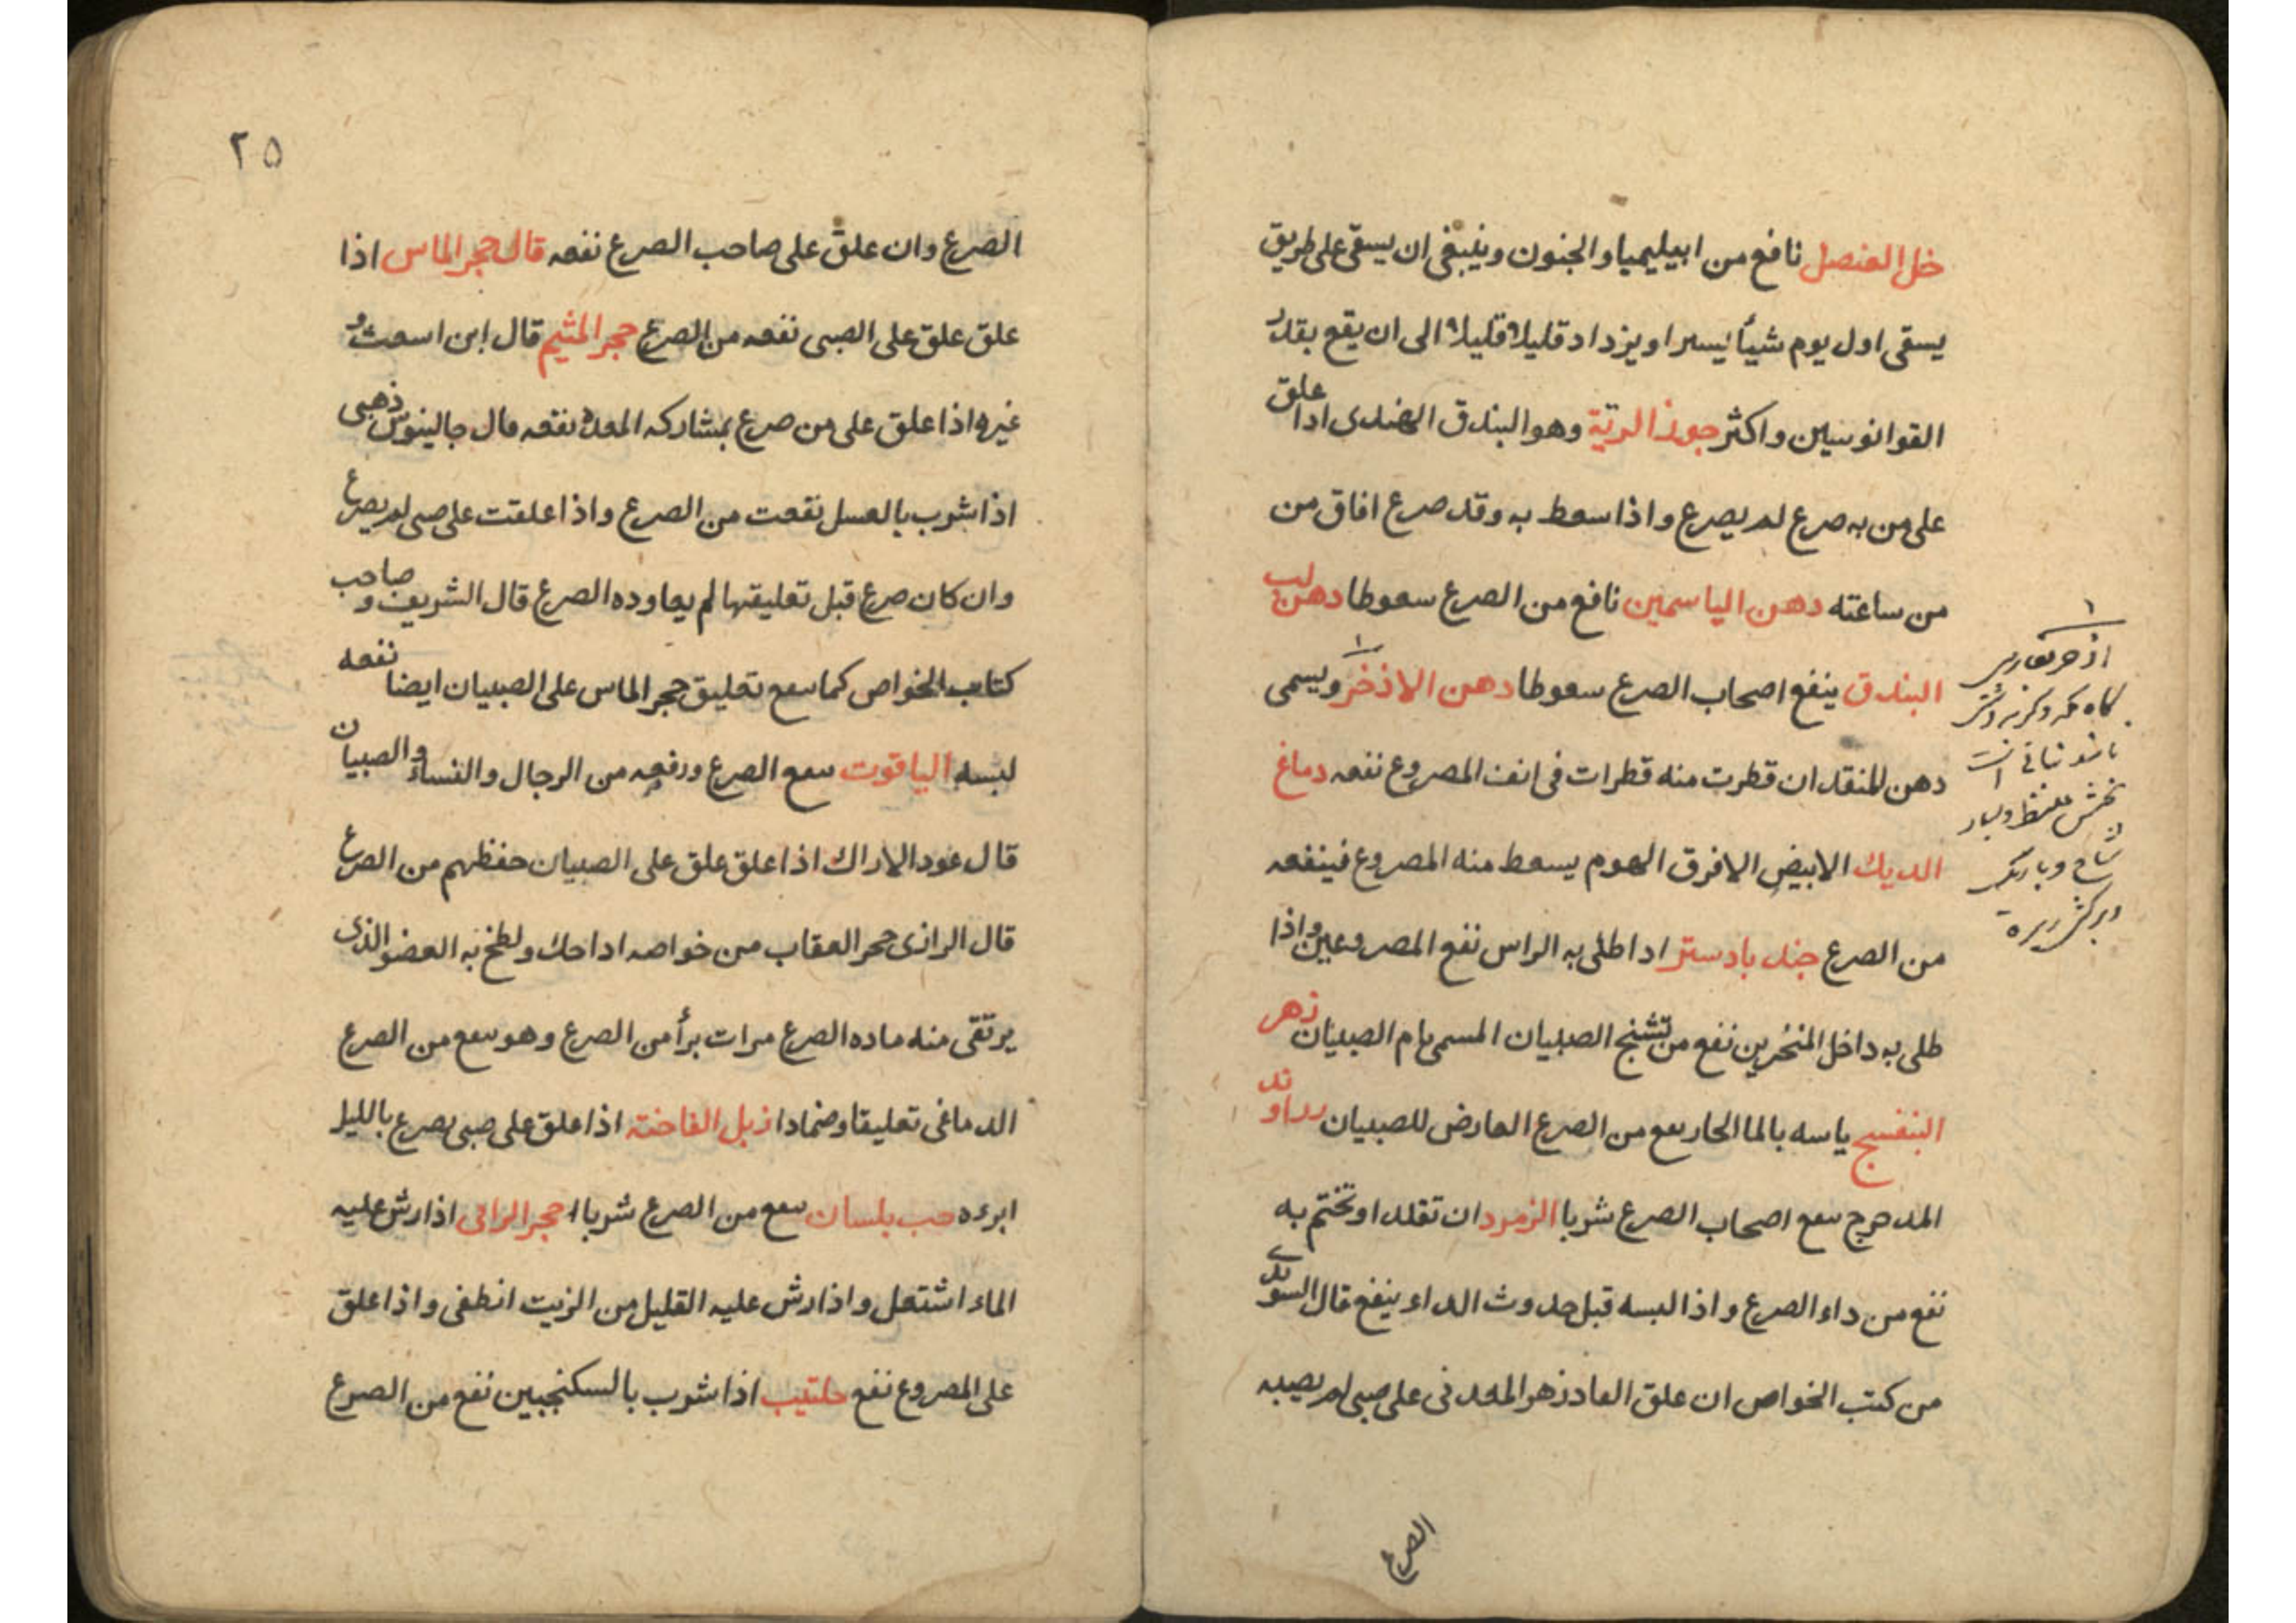 خل العنصل نافع من ابيليميا والجنون وينبغى ان يسقى على طريق
يسقى اول يوم شيأ يسيرا ويزداد قليلا قليلا الى ان يقع بقدر
القوانوسين واكثر جوز الرتة وهو البندق الهندى اذا علق
على من به صرع لم يصرع واذا سعط به وقد صرع افاق من
من ساعته دهن الياسمين نافع من الصرع سعوطا دهن لب
البندق ينفع اصحاب الصرع سعوطا دهن الاذخر ويسمى
دهن المنقد ان قطرت منه قطرات فى انف المصروع نفعه دماغ
الديك الابيض الافرق الهوم يسعط منه المصروع فينفعه
من الصرع جندبادستر اذا طلى به الراس نفع المصروعين واذا
طلى به داخل المنخرين نفع من تشنج الصبيان المسمى بام الصبيان زهر
البنفسج ياسه بالما الحار سع من الصرع العارض للصبيان رراوند
المدحرج سع اصحاب الصرع شربا الزمرد ان تقلد او تختم به
نفع من داء الصرع واذا لبسه قبل حدوث الداء ينفع قال السويدى
من كتب الخواص ان علق الفادزهر المعدنى على صبى لم يصبه
الصرع
١
اذخر بفارسى
كاه مكه
٢٥
الصرع وان علق على صاحب الصرع نفعه قال حجر الماس اذا
علق علق على الصبى نفعه من الصرع حجر المثيم قال ابن اسمث و
غيره اذا علق على من صرع بمشاركه المعدة نفعه قال جالينوس ذهبى
اذا شرب بالعسل نفعت من الصرع واذا علقت على صبى لم يصرع
وان كان صرع قبل تعليقها لم يعاوده الصرع قال الشريف و صاحب
كتاب الخواص كما سع تعليق حجر الماس على الصبيان ايضا نفعه
لبسه الياقوت سع الصرع ورفعه من الرجال والنساء والصبيان
قال عود الاراك اذا علق علق على الصبيان حفظهم من الصرع
قال الرازى حجر العقاب من خواصه اذا حك ولطخ به العضو الذى
يرتقى منه ماده الصرع مرات برأ من الصرع وهو سع من الصرع
الدماغى تعليقا وضمادا زبل الفاخته اذا علق على صبى يصرع بالليل
ابرءه حب بلسان سع من الصرع شربا حجر الراقى اذا رش عليه
الماء اشتعل واذا رش عليه القليل من الزيت انطفى واذا علق
على المصروع نفع حلتيب اذا شرب بالسكنجبين نفع من الصرع